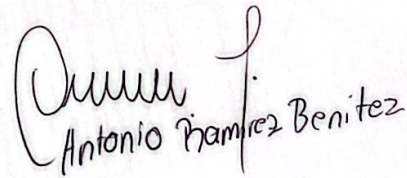 Antonio Ramirez Benitez